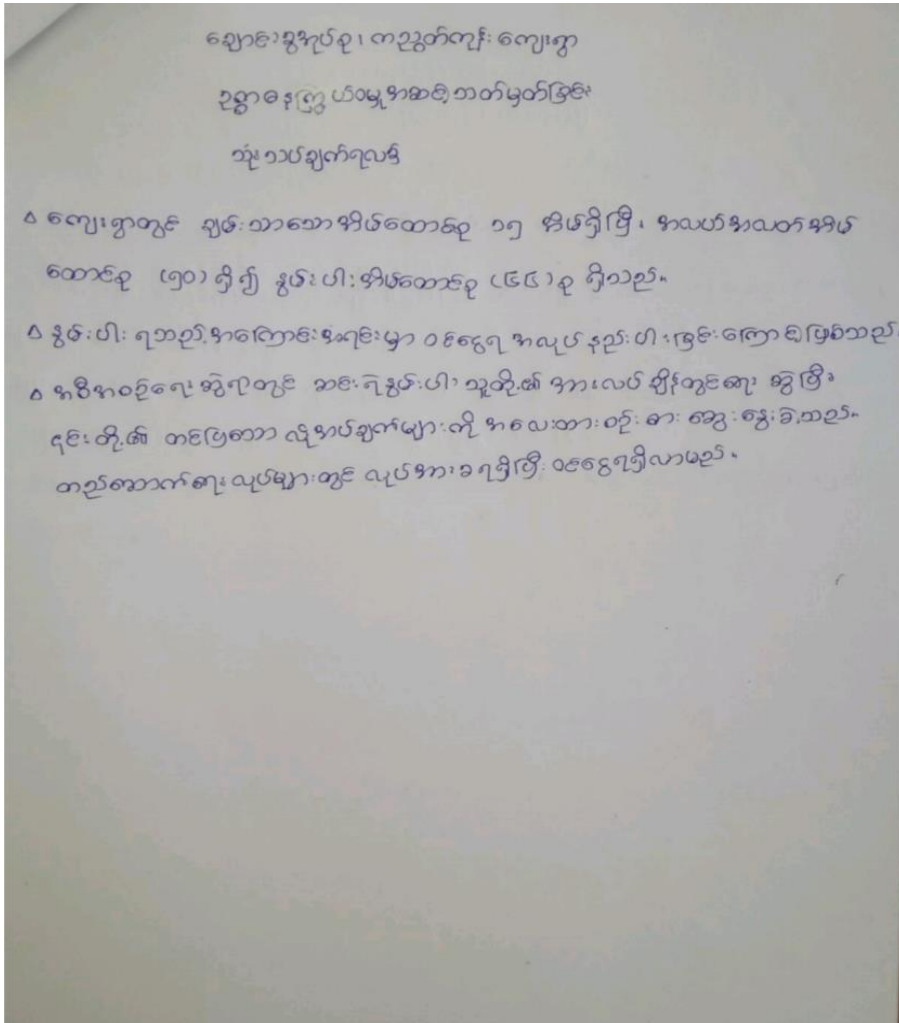 ချောင်းခွအုပ်စု၊ ကညွတ်ကုန်း ကျေးရွာ
ဥစ္စာဓနကြွယ်ဝမှုအဆင့်သတ်မှတ်ခြင်း
သုံးသပ်ချက်ရလဒ်
ကျေးရွာတွင် ချမ်းသာသောအိမ်ထောင်စု ၁၅ အိမ်ရှိပြီး အလယ်အလတ်အိမ်
ထောင်စု (၅၀) ရှိ၍ နွမ်းပါးအိမ်ထောင်စု (၆၆) စု ရှိသည်။
နွမ်းပါးရသည့်အကြောင်းအရင်းမှာ ဝင်ငွေရအလုပ်နည်းပါးခြင်းကြောင့်ဖြစ်သည်
အစီအစဉ်ရေးဆွဲရာတွင် ဆင်းရဲနွမ်းပါး သူတို့၏ အားလပ်ချိန်တွင်ရေး ဆွဲပြီး
၎င်းတို့၏ တင်ပြသော လိုအပ်ချက်များကို အလေးထားစဉ်းစား ဆွေးနွေးခဲ့သည်။
တည်ဆောက်ရေးလုပ်များတွင် လုပ်အားခရရှိပြီး ဝင်ငွေရရှိလာမည်။